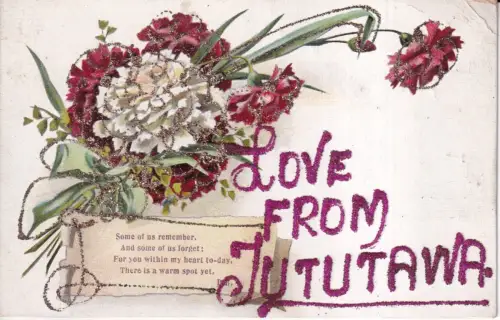 LOVE
FROM
JUTUTAWA.
Some of us remember,
And some of us forget;
For you within my heart to-day,
There is a warm spot yet.